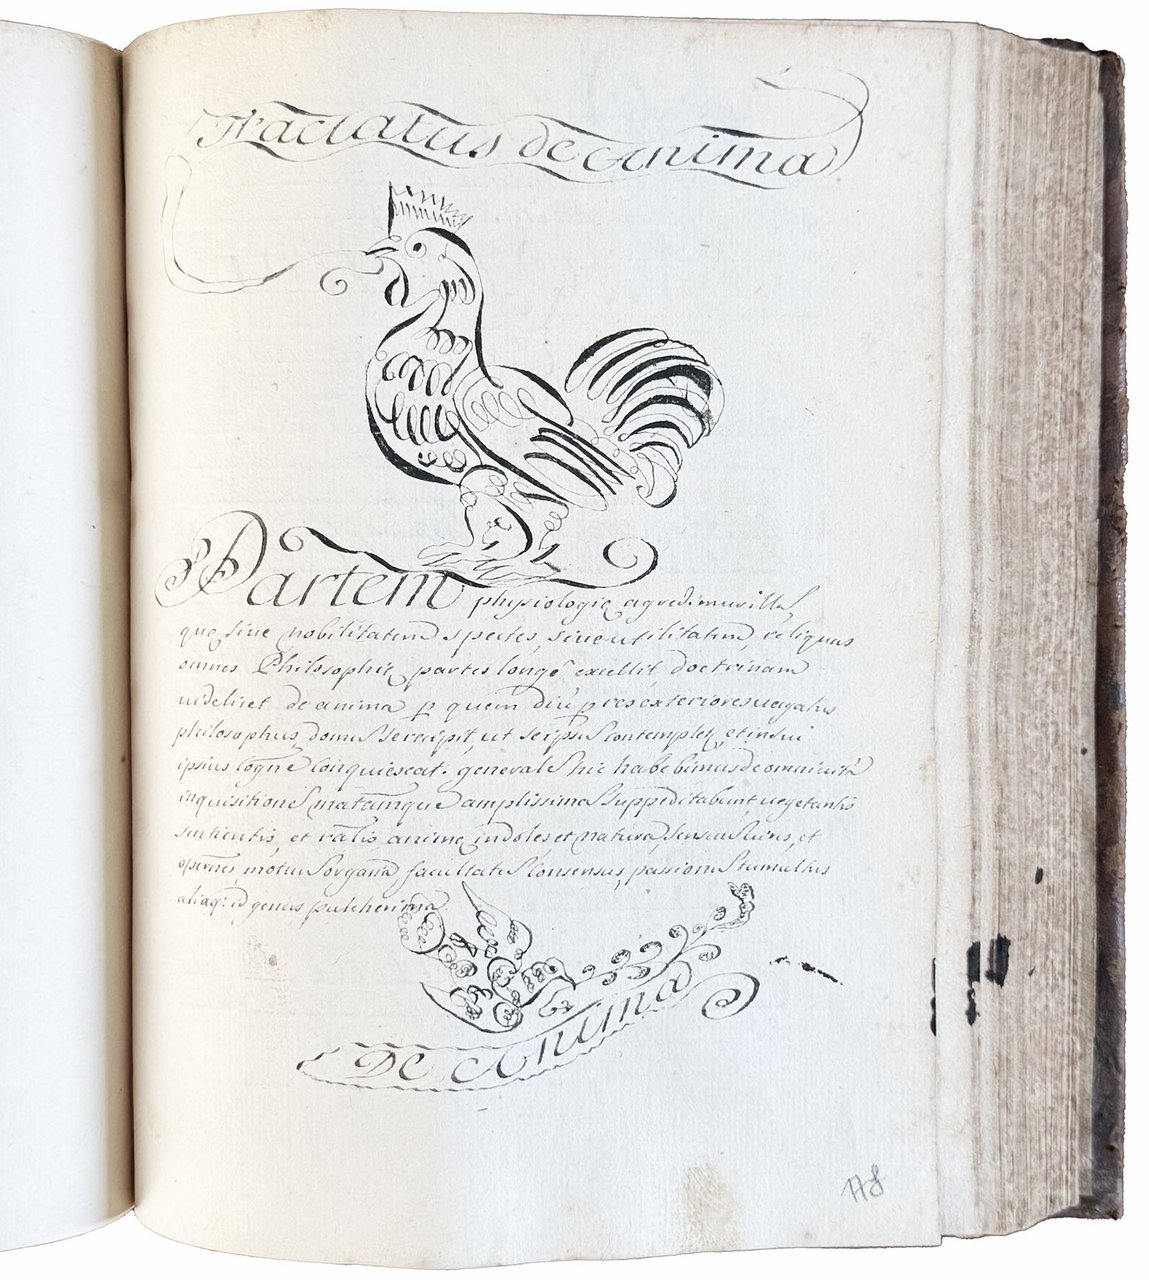 Tractatus de Anima
Partem physiologię agredimur illã
quę sive nobilitatem spectes, sive utilitatem, reliquas
omnes Philosophię partes longe excellit, doctrinam
videlicet de anima p quem diu p res exteriores vagatus
philosophus, domu se recipit, ut seipsũ contempletr, et in sui
ipsius cogne conquiescat. generalẽ hic habebimus de omni vitâ
inquisitionẽ, matãmque amplissimã suppeditabunt vegetantis
sentientis, et ralis animę indoles et natura, sensuũ vires, et
opernes, motuũ organa facultatũ consensus, passionũ tumultus
aliaq: id genus pulcherima
De Anima
178